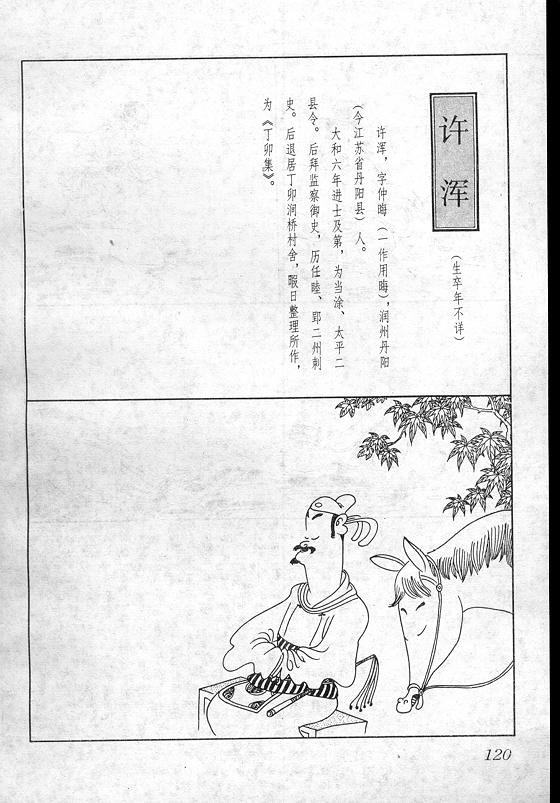 许浑
(生卒年不详)
许浑，字仲晦(一作用晦)，润州丹阳
(今江苏省丹阳县)人。
大和六年进士及第，为当涂、太平二
县令。后拜监察御史，历任睦、郢二州刺
史。后退居丁卯涧桥村舍，暇日整理所作，
为《丁卯集》。
120